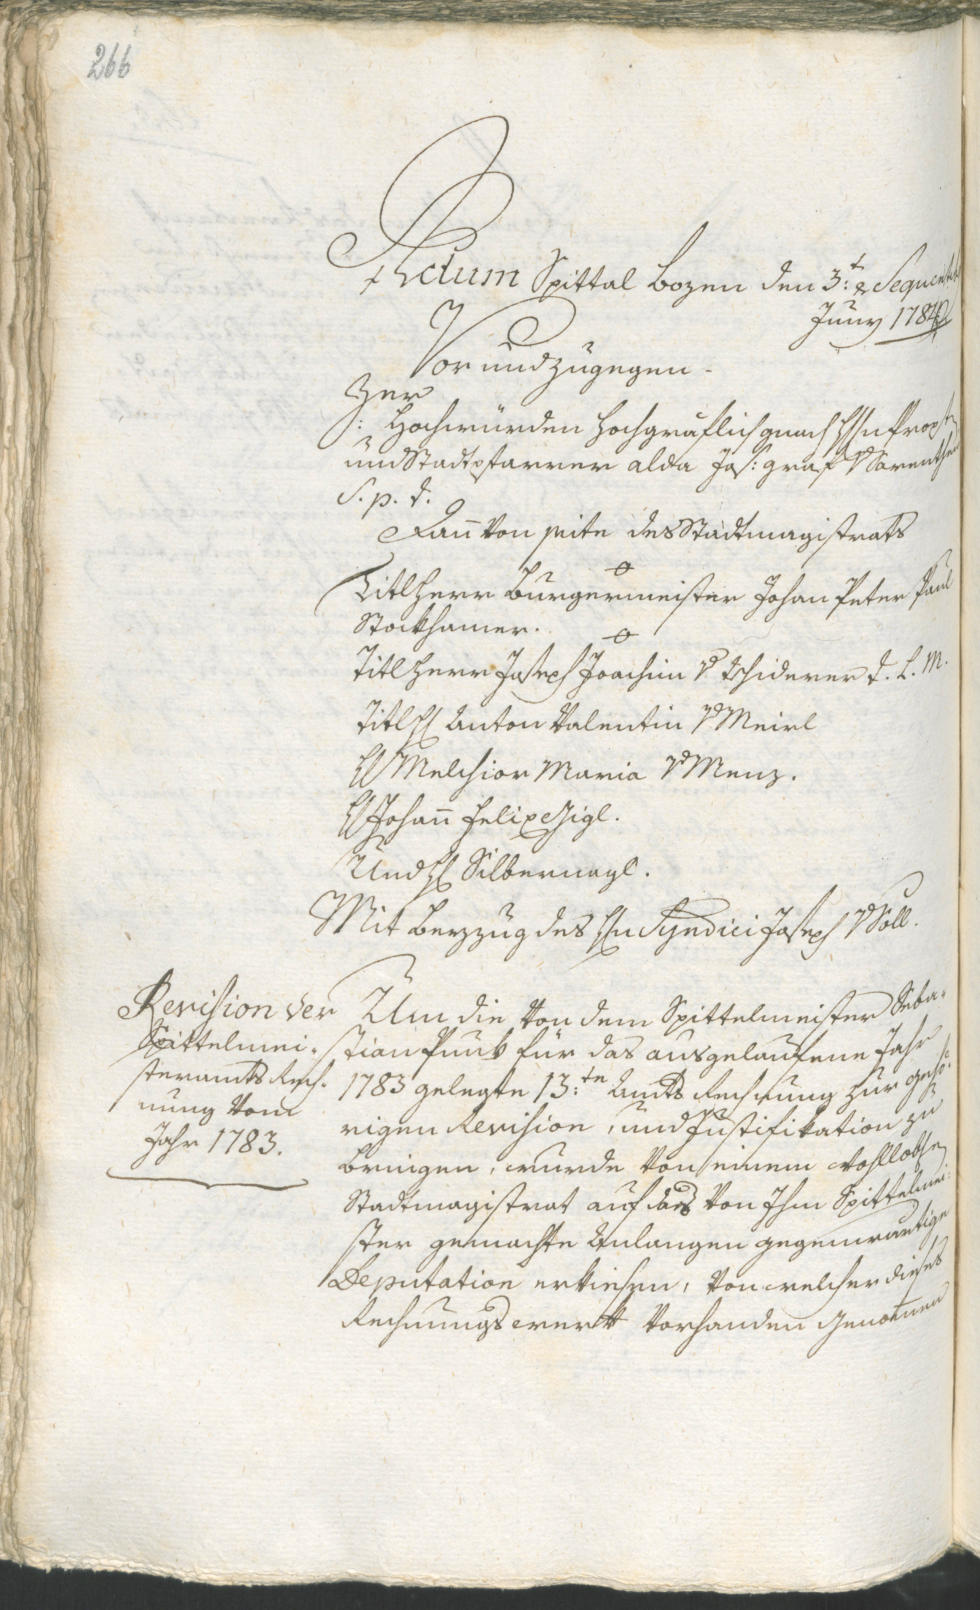 266
Actum Spittal Bozen den 3:t & Sequent:
Juny 1784
Vor und zugegen.
Ihro
: Hochwürden Hochgräflich gnad H: Hn Propst
und Stadtpfarrer alda Jos: Graf v Sarenthein
S. p. t.
Dan von seite des Stadtmagistrats
Titl Herr Burgermeister Johan Peter Paul
Stockhamer.
Titl Herr Joseph Joachim v Tschiderer d. L. M.
Titl H Anton Valentin v Meirl
H Melchior Maria v Menz.
H Johañ Felix Gigl.
Und H Silbernagl.
Mit Beyzug des Hn Syndici Joseph v Söll.
Revision der
Spittelmei-
steramts Rech-
nung vom
Jahr 1783.
Um die von dem Spittelmeister Seba-
stian Punk für das ausgelaufene Jahr
1783 gelegte 13:te Amts Rechnung zur gehö-
rigen Revision, und Justifikation zu
bringen, wurde von einem wohllobl:
Stadtmagistrat auf das von Ihm Spittelmei-
ster gemachte Anlangen gegenwärtige
Deputation erkiesen, von welcher dieses
Rechnungswerk vorhanden genomen